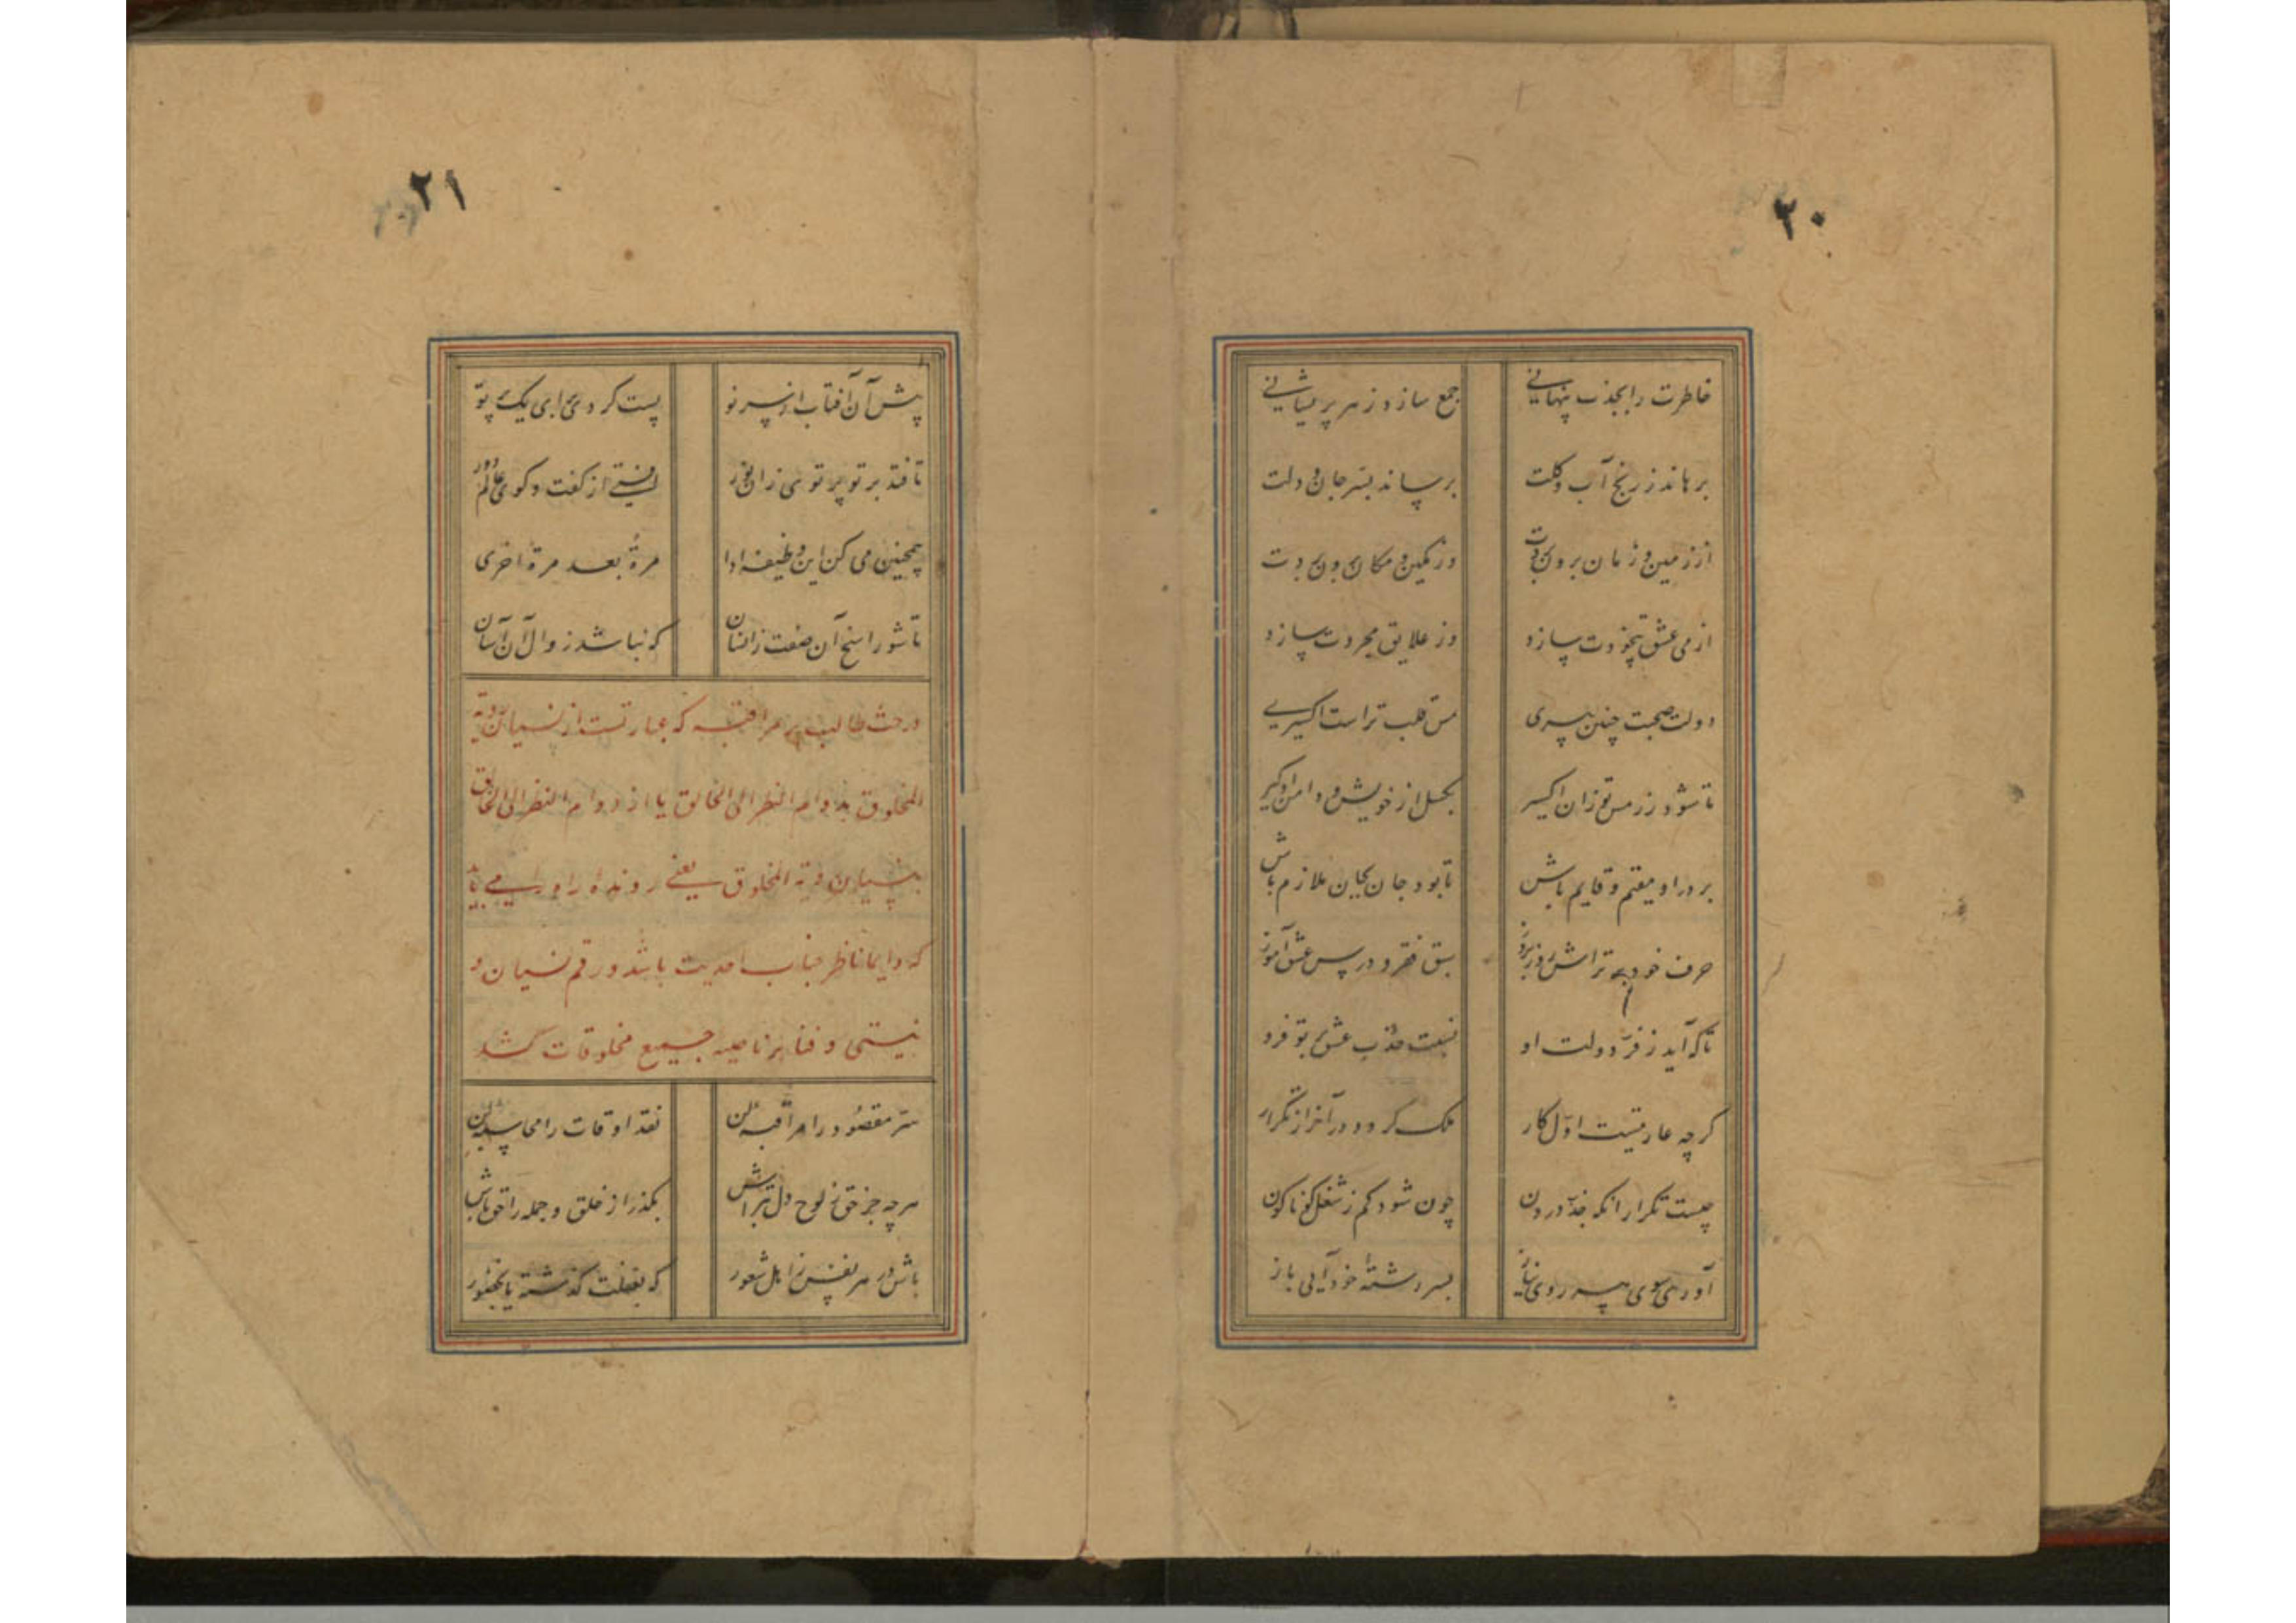 ۲۰
خاطرت را بجذب پنهانی جمع سازد ز هر پریشانی
برهاند ز رنج آب و گلت برساند بسر جان و دلت
از زمین و زمان برون بردت وز مکین و مکان برون بردت
از می عشق بیخودت سازد وز علایق مجردت سازد
دولت صحبت چنین پیری مس قلب تراست اکسیری
تا شود زر مس تو زان اکسیر بگسل از خویش و دامن او گیر
بر در او مقیم و قایم باش تا بود جان بجان ملازم باش
حرف خود می تراش روز بروز سبق فقر و درس عشق آموز
تا که آید ز فر دولت او نسبت جذب عشق بتو فرو
گرچه عاریتست اول کار ملک گردد در آخر از تکرار
چیست تکرار آنکه جذب درون چون شود کم ز شغل گوناگون
آوری سوی پیر روی نیاز بسر رشته خود آیی باز
۲۱
پیش آن آفتاب از سر نو پست کردی ای یک پرتو
تا فتد بر تو پرتوی زان نور ایستی از گفت و گوی عالم دور
همچنین می کن این وظیفه ادا مرة بعد مرة اخری
تا شود راسخ آن صفت زانسان که نباشد زوال آن آسان
در حث طالب بر مراقبه که عبارتست از نسیان رؤیة
المخلوق بدوام النظر الی الخالق یا از دوام النظر الی الخالق
بنسیان رؤیة المخلوق یعنی رونده راه را می باید
که دایما ناظر جناب احدیت باشد و رقم نسیان و
نیستی و فنا بر ناصیه جمیع مخلوقات کشد
سر مقصود را مراقبه کن نقد اوقات را محاسبه کن
هرچه جز حق ز لوح دل بتراش بگذر از خلق و جمله را حق باش
باش در هر نفس ز اهل شعور که بغفلت گذشته یا بحضور